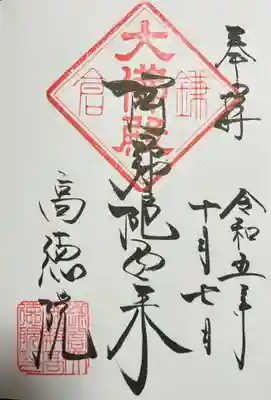 奉拝
令和五年
十月七日
大佛殿
鎌倉
阿弥陀如来
高徳院